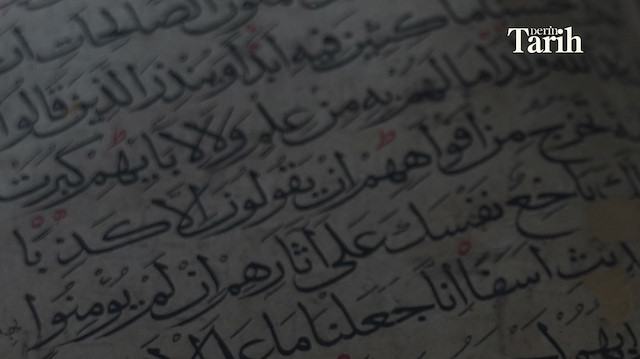 Derin
Tarih
ون الصالحات ا
ما كثين فيه ابدا وينذر الذين قالوا
ما لهم به من علم ولا لابايهم كبرت
تخرج من افواههم ان يقولون الا كذبا
باخع نفسك على اثارهم ان لم يؤمنوا
اسفا انا جعلنا ما على الا